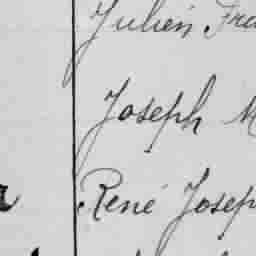 Julien Fra
Joseph M
René Josep